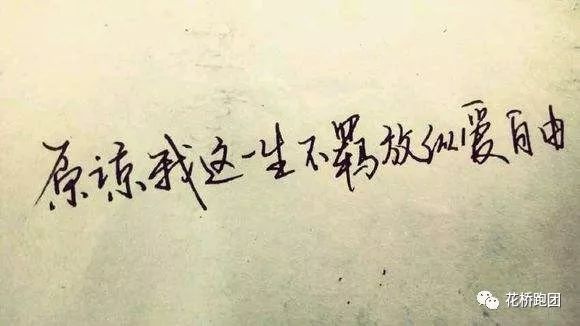 原谅我这一生不羁放纵爱自由
花桥跑团